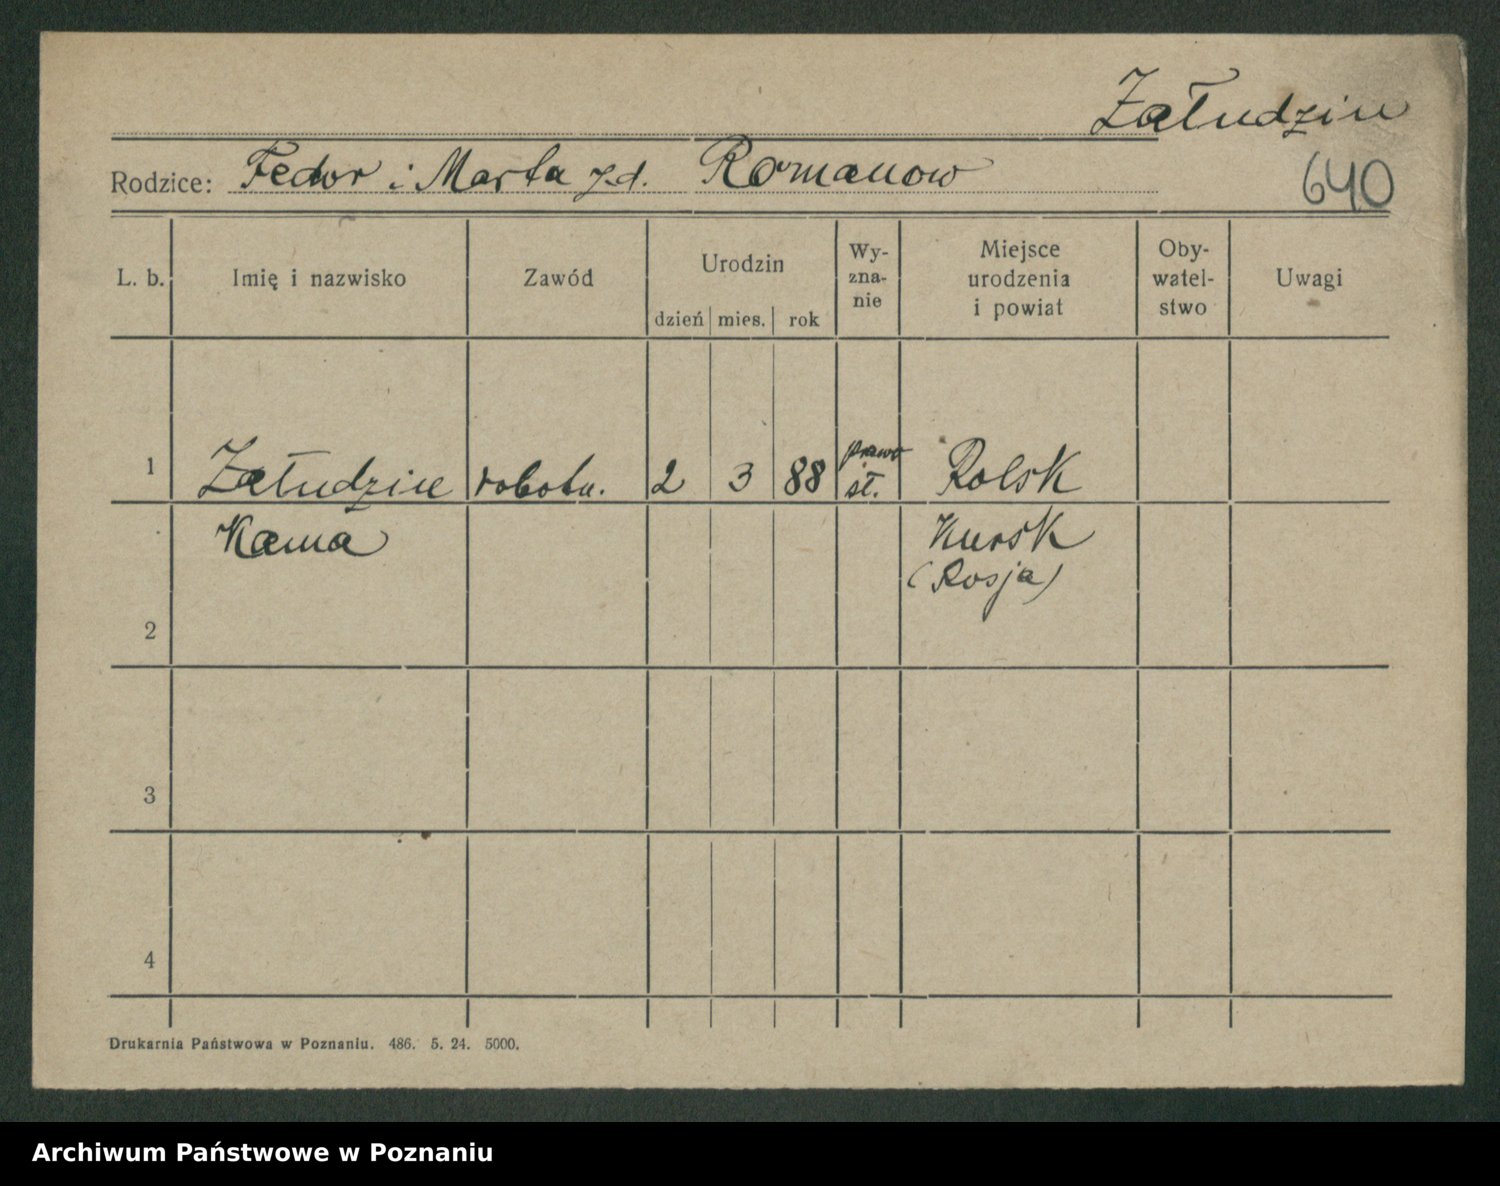 Załudzin
Rodzice: Fedor i Marta z d. Romanow
640
L. b. Imię i nazwisko Zawód Urodzin dzień mies. rok Wy-zna-nie Miejsce urodzenia i powiat Oby-watel-stwo Uwagi
1 Załudzin robotn. 2 3 88 prawo sł. Rolsk
Kursk
(Rosja)
2
3
4
Drukarnia Państwowa w Poznaniu. 486. 5. 24. 5000.
Archiwum Państwowe w Poznaniu